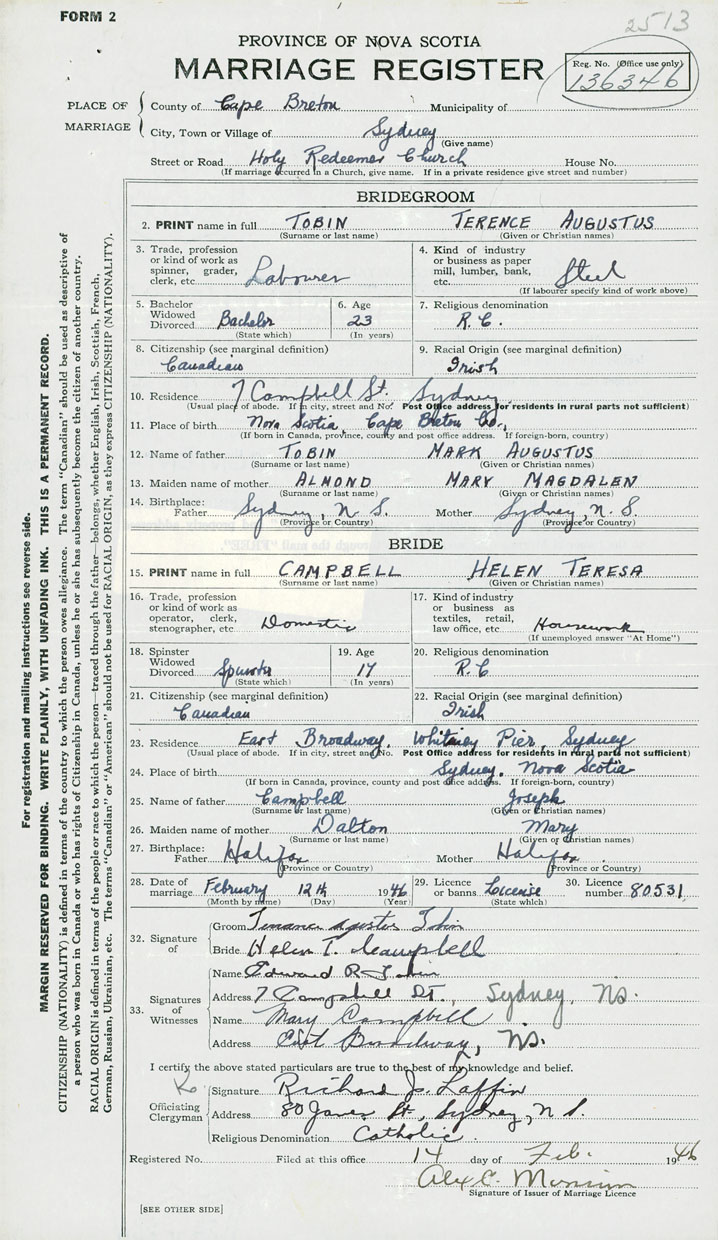 FORM 2
2513
PROVINCE OF NOVA SCOTIA
MARRIAGE REGISTER
Reg. No. (Office use only)
136346
PLACE OF MARRIAGE
County of Cape Breton Municipality of
City, Town or Village of Sydney
(Give name)
Street or Road Holy Redeemer Church House No.
(If marriage occurred in a Church, give name. If in a private residence give street and number)
BRIDEGROOM
2. PRINT name in full TOBIN TERENCE AUGUSTUS
(Surname or last name) (Given or Christian names)
3. Trade, profession or kind of work as spinner, grader, clerk, etc. Labourer
4. Kind of industry or business as paper mill, lumber, bank, etc. Steel
(If labourer specify kind of work above)
5. Bachelor Widowed Divorced Bachelor
(State which)
6. Age 23
(In years)
7. Religious denomination R.C.
8. Citizenship (see marginal definition)
Canadian
9. Racial Origin (see marginal definition)
Irish
10. Residence 7 Campbell St. Sydney
(Usual place of abode. If in city, street and No. Post Office address for residents in rural parts not sufficient)
11. Place of birth Nova Scotia, Cape Breton Co.,
(If born in Canada, province, county and post office address. If foreign-born, country)
12. Name of father TOBIN MARK AUGUSTUS
(Surname or last name) (Given or Christian names)
13. Maiden name of mother ALMOND MARY MAGDALEN
(Surname or last name) (Given or Christian names)
14. Birthplace: Father Sydney, N.S. Mother Sydney, N.S.
(Province or Country) (Province or Country)
BRIDE
15. PRINT name in full CAMPBELL HELEN TERESA
(Surname or last name) (Given or Christian names)
16. Trade, profession or kind of work as operator, clerk, stenographer, etc. Domestic
17. Kind of industry or business as textiles, retail, law office, etc. Housework
(If unemployed answer "At Home")
18. Spinster Widowed Divorced Spinster
(State which)
19. Age 17
(In years)
20. Religious denomination R.C
21. Citizenship (see marginal definition)
Canadian
22. Racial Origin (see marginal definition)
Irish
23. Residence East Broadway, Whitney Pier, Sydney
(Usual place of abode. If in city, street and No. Post Office address for residents in rural parts not sufficient)
24. Place of birth Sydney, Nova Scotia
(If born in Canada, province, county and post office address. If foreign-born, country)
25. Name of father Campbell Joseph
(Surname or last name) (Given or Christian names)
26. Maiden name of mother Dalton Mary
(Surname or last name) (Given or Christian names)
27. Birthplace: Father Halifax Mother Halifax
(Province or Country) (Province or Country)
28. Date of marriage February 12th 1946
(Month by name) (Day) (Year)
29. Licence or banns License
(State which)
30. Licence number 80531
32. Signature of
Groom Tobin
Bride Helen T. Campbell
33. Signatures of Witnesses
Name Edward R Tobin
Address 7 Campbell St., Sydney, NS.
Name Mary Campbell
Address East Broadway, NS.
I certify the above stated particulars are true to the best of my knowledge and belief.
Officiating Clergyman
Signature Richard J. Laffin
Address 80 St, Sydney, N S.
Religious Denomination Catholic.
Registered No. Filed at this office 14 day of Feb. 1946
Alex C.
Signature of Issuer of Marriage Licence
[SEE OTHER SIDE]
For registration and mailing instructions see reverse side.
MARGIN RESERVED FOR BINDING. WRITE PLAINLY, WITH UNFADING INK. THIS IS A PERMANENT RECORD.
CITIZENSHIP (NATIONALITY) is defined in terms of the country to which the person owes allegiance. The term "Canadian" should be used as descriptive of
a person who was born in Canada or who has rights of Citizenship in Canada, unless he or she has subsequently become the citizen of another country.
RACIAL ORIGIN is defined in terms of the people or race to which the person—traced through the father—belongs, whether English, Irish, Scottish, French,
German, Russian, Ukrainian, etc. The terms "Canadian" or "American" should not be used for RACIAL ORIGIN, as they express CITIZENSHIP (NATIONALITY).